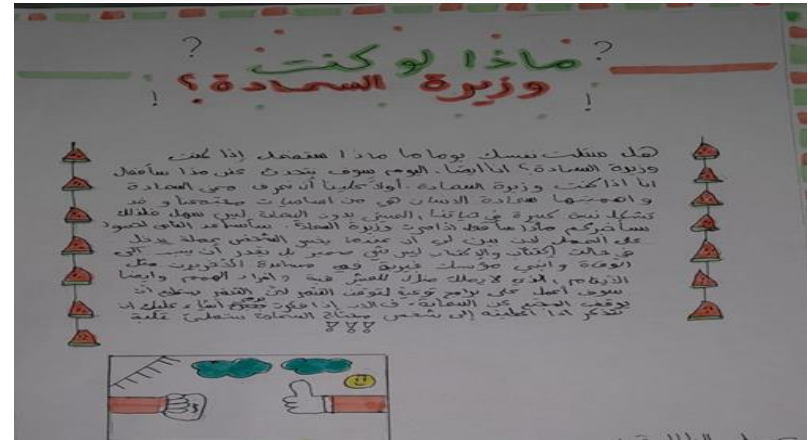 ماذا لو كنت
وزيرة السعادة؟
هل مثلت نفسك يوما ما ماذا ستفعل إذا كنت
وزيرة السعادة؟ أنا أيضا. اليوم سوف نتحدث عن ماذا سأفعل
أنا إذا كنت وزيرة السعادة. أولا علينا أن نعرف معنى السعادة
و أهميتها سعادة الانسان هي من أساسيات مجتمعنا و قد
تشكل نسبة كبيرة في حياتنا، العيش بدون السعادة ليس سهل فلذلك
سأخبركم ماذا سأفعل إذا صرت وزيرة السعادة. سأساعد الناس
على العمل لأن من أن عندما يخسر الشخص عمله يدخل
في حالة إكتئاب والإكتئاب ليس شي صغير بل يقدر أن يسبب إلى
الوفاة و انني مؤسسة خيرية فيها مساعدة للآخرين مثل
الأيتام، الذي لا يملك منزل للعيش فيه و أفراد الهمم وأيضا
سوف أعمل على برامج توعية لتوقف التنمر لأن التنمر يستطيع أن
يوقف المجتمع عن السعادة. في إذا فكرت يوم عليك أن
تتذكر اذا أعطيته إلى شخص محتاج السعادة ستطغى عليه
!!!